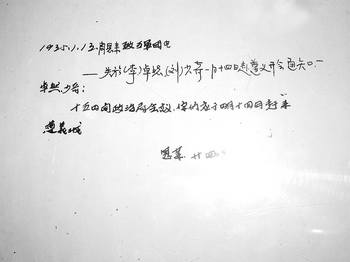 1935.1.13.周恩来致五军团电
——关于(李)卓然、(刘)少奇一月十四日赴遵义开会通知
卓然、少奇：
十五日开政治局会议，你们应于明十四日赶来
遵义城
恩来 廿四